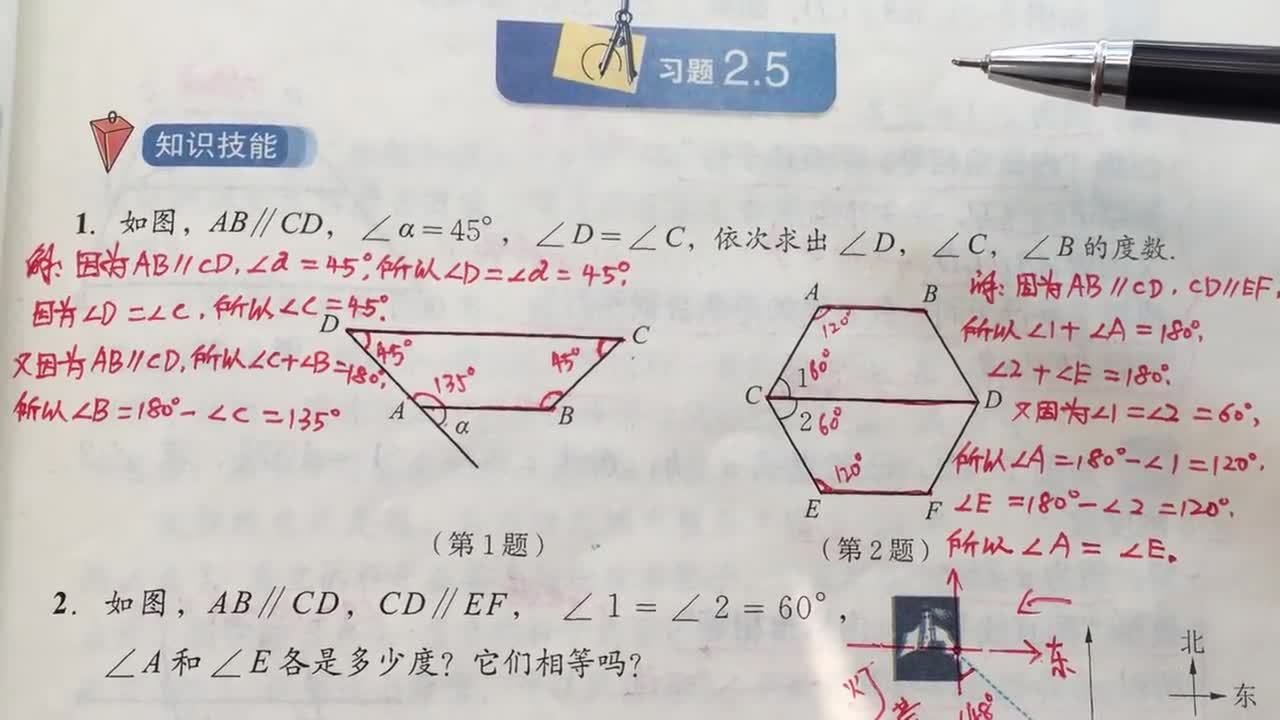 习题 2.5
知识技能
1. 如图，AB∥CD，∠α=45°，∠D=∠C，依次求出∠D，∠C，∠B的度数.
解：因为AB∥CD，∠α=45°，所以∠D=∠α=45°.
因为∠D=∠C，所以∠C=45°.
又因为AB∥CD，所以∠C+∠B=180°，
所以∠B=180°-∠C=135°
D
C
45°
45°
135°
A
α
B
(第1题)
A
B
120°
C
1
60°
D
2
60°
120°
E
F
(第2题)
解：因为AB∥CD，CD∥EF，
所以∠1+∠A=180°，
∠2+∠E=180°.
又因为∠1=∠2=60°，
所以∠A=180°-∠1=120°，
∠E=180°-∠2=120°.
所以∠A=∠E.
2. 如图，AB∥CD，CD∥EF，∠1=∠2=60°，
∠A和∠E各是多少度？它们相等吗？
东
灯
48°
北
东